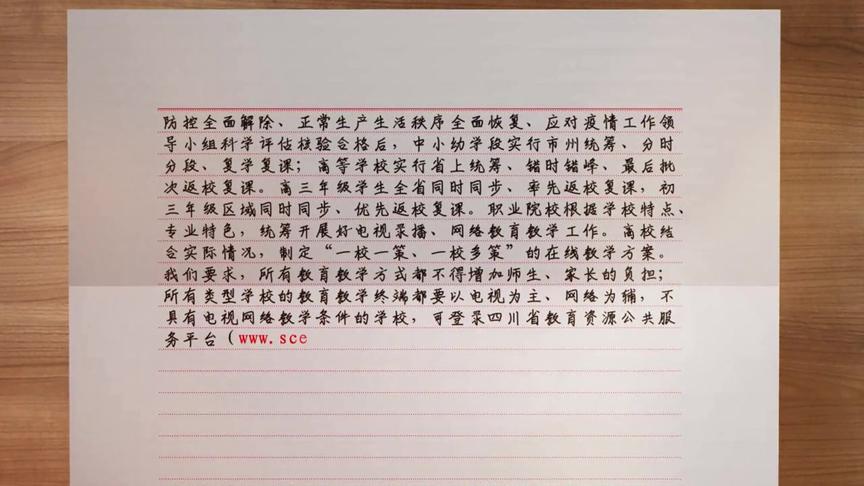 防控全面解除、正常生产生活秩序全面恢复、应对疫情工作领
导小组科学评估核验合格后，中小幼学段实行市州统筹、分时
分段、复学复课；高等学校实行省上统筹、错时错峰、最后批
次返校复课。高三年级学生全省同时同步、率先返校复课，初
三年级区域同时同步、优先返校复课。职业院校根据学校特点、
专业特色，统筹开展好电视录播、网络教育教学工作。高校结
合实际情况，制定“一校一策、一校多策”的在线教学方案。
我们要求，所有教育教学方式都不得增加师生、家长的负担；
所有类型学校的教育教学终端都要以电视为主、网络为辅，不
具有电视网络教学条件的学校，可登录四川省教育资源公共服
务平台（www.sce